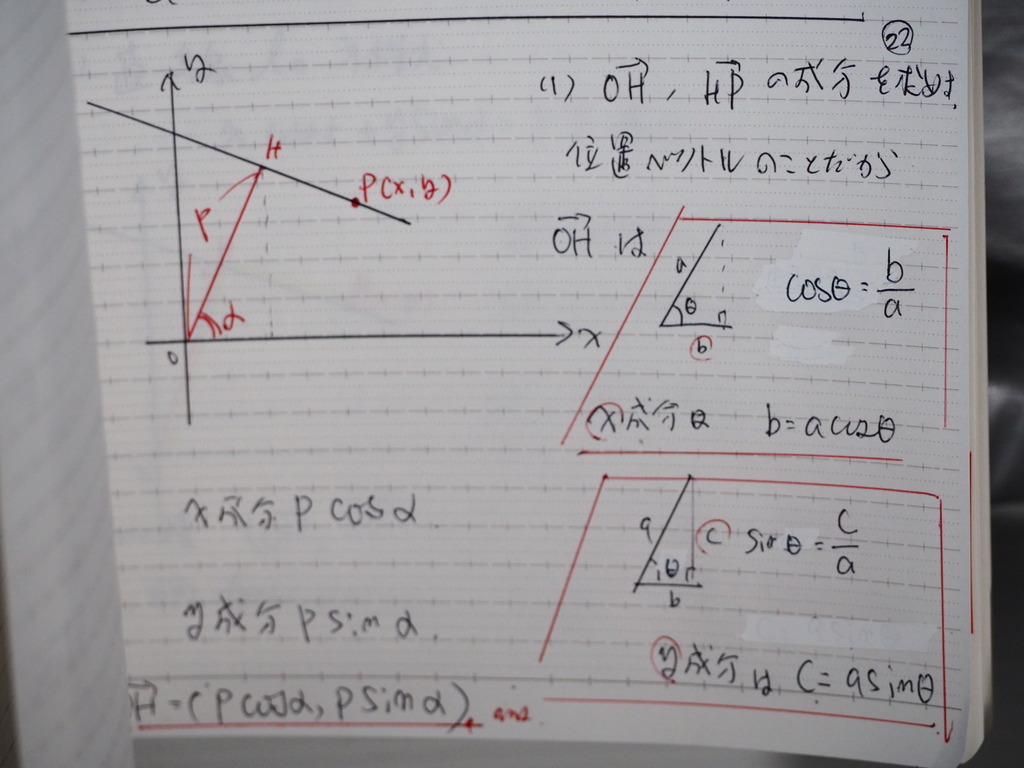 22
(1) OH, HP の成分を求めよ.
位置ベクトルのことだから
OHは
y
H
P(x, y)
P
α
O
x
a
θ
b
cosθ = b/a
x成分は b = a cosθ
a
c
θ
b
sinθ = c/a
y成分は c = a sinθ
x成分 P cosα
y成分 P sinα.
H = (P cosα, P sinα) ans.